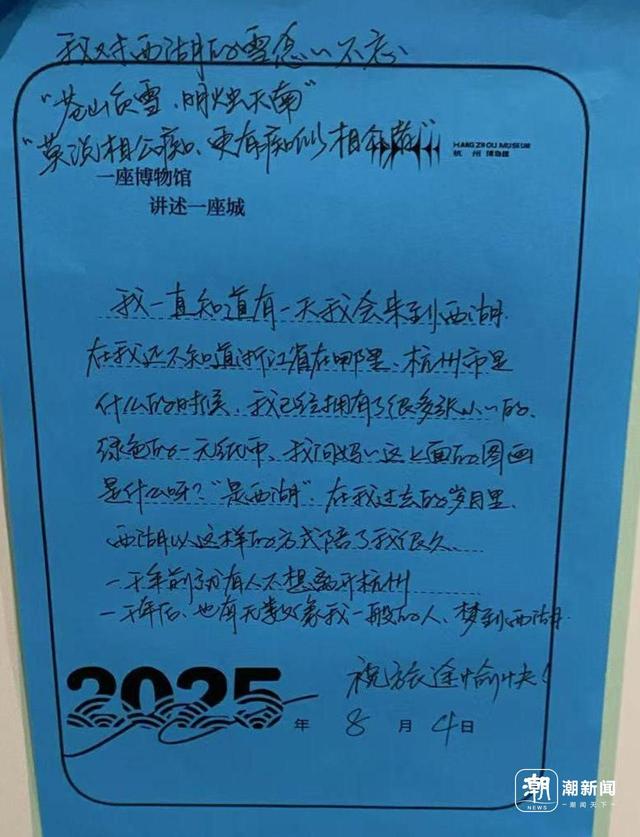 我对西湖的雪念念不忘
“苍山负雪,明烛天南”
“莫说相公痴、更有痴似相公者”
HANGZHOU MUSEUM
杭州博物馆
一座博物馆
讲述一座城
我一直知道有一天我会来到西湖.
在我还不知道浙江省在哪里、杭州市是
什么的时候、我已经拥有了很多张小小的、
绿色的一元纸币、我问妈妈这上面的图画
是什么呀?“是西湖”.在我过去的岁月里、
西湖以这样的方式陪了我很久、
一千年前就有人不想离开杭州
一千年后、也有无数像我一般的人、梦到西湖.
祝旅途愉快!
2025年8月4日
潮 潮新闻
潮闻天下